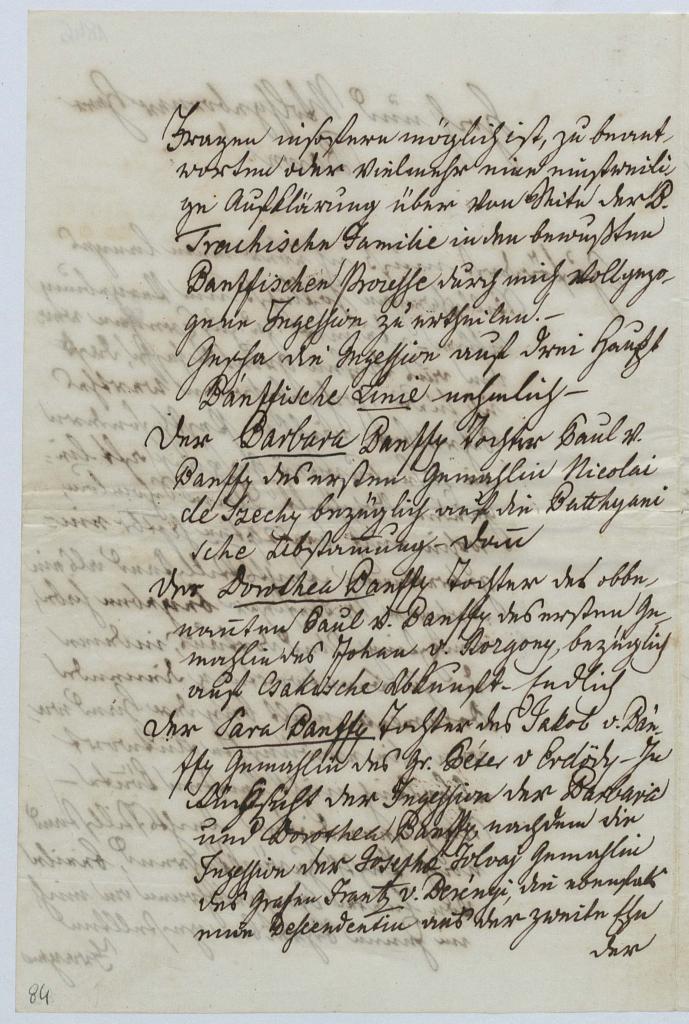 Fragen insofern möglich ist, zu beant-
worten oder vielmehr eine einstweili-
ge Aufklärung über von Seite der B.
Trachische Familie in den bewußten
Banffischen Prozesse durch mich vollgezo-
gene Ingession zu ertheilen.-
Gescha die Ingession auf drei Haupt
Bánffische Linie nehmlich-
Der Barbara Banffy Tochter Paul v.
Banffy des ersten Gemahlin Nicolai
de Szechy bezüglich auf die Batthyani
sche Abstam̄ung- Dan̄
Der Dorothea Banffy Tochter des obbe-
nan̄ten Paul v. Banffy des ersten Ge-
mahlin des Johan v. Rozgony, bezüglich
auf Csakische Abkunft- Endlich
Der Sara Banffy Tochter des Jakob v. Bán-
ffy Gemahlin des Gr. Péter v Erdődy- In
Rücksicht der Ingession der Barbara
und Dorothea Banffy, nachdem die
Ingession der Josepha Tolvaj Gemahlin
des Grafen Frantz v. Berényi, die ebenfals
eine Descendentin aus der zweite Ehe
der
84.